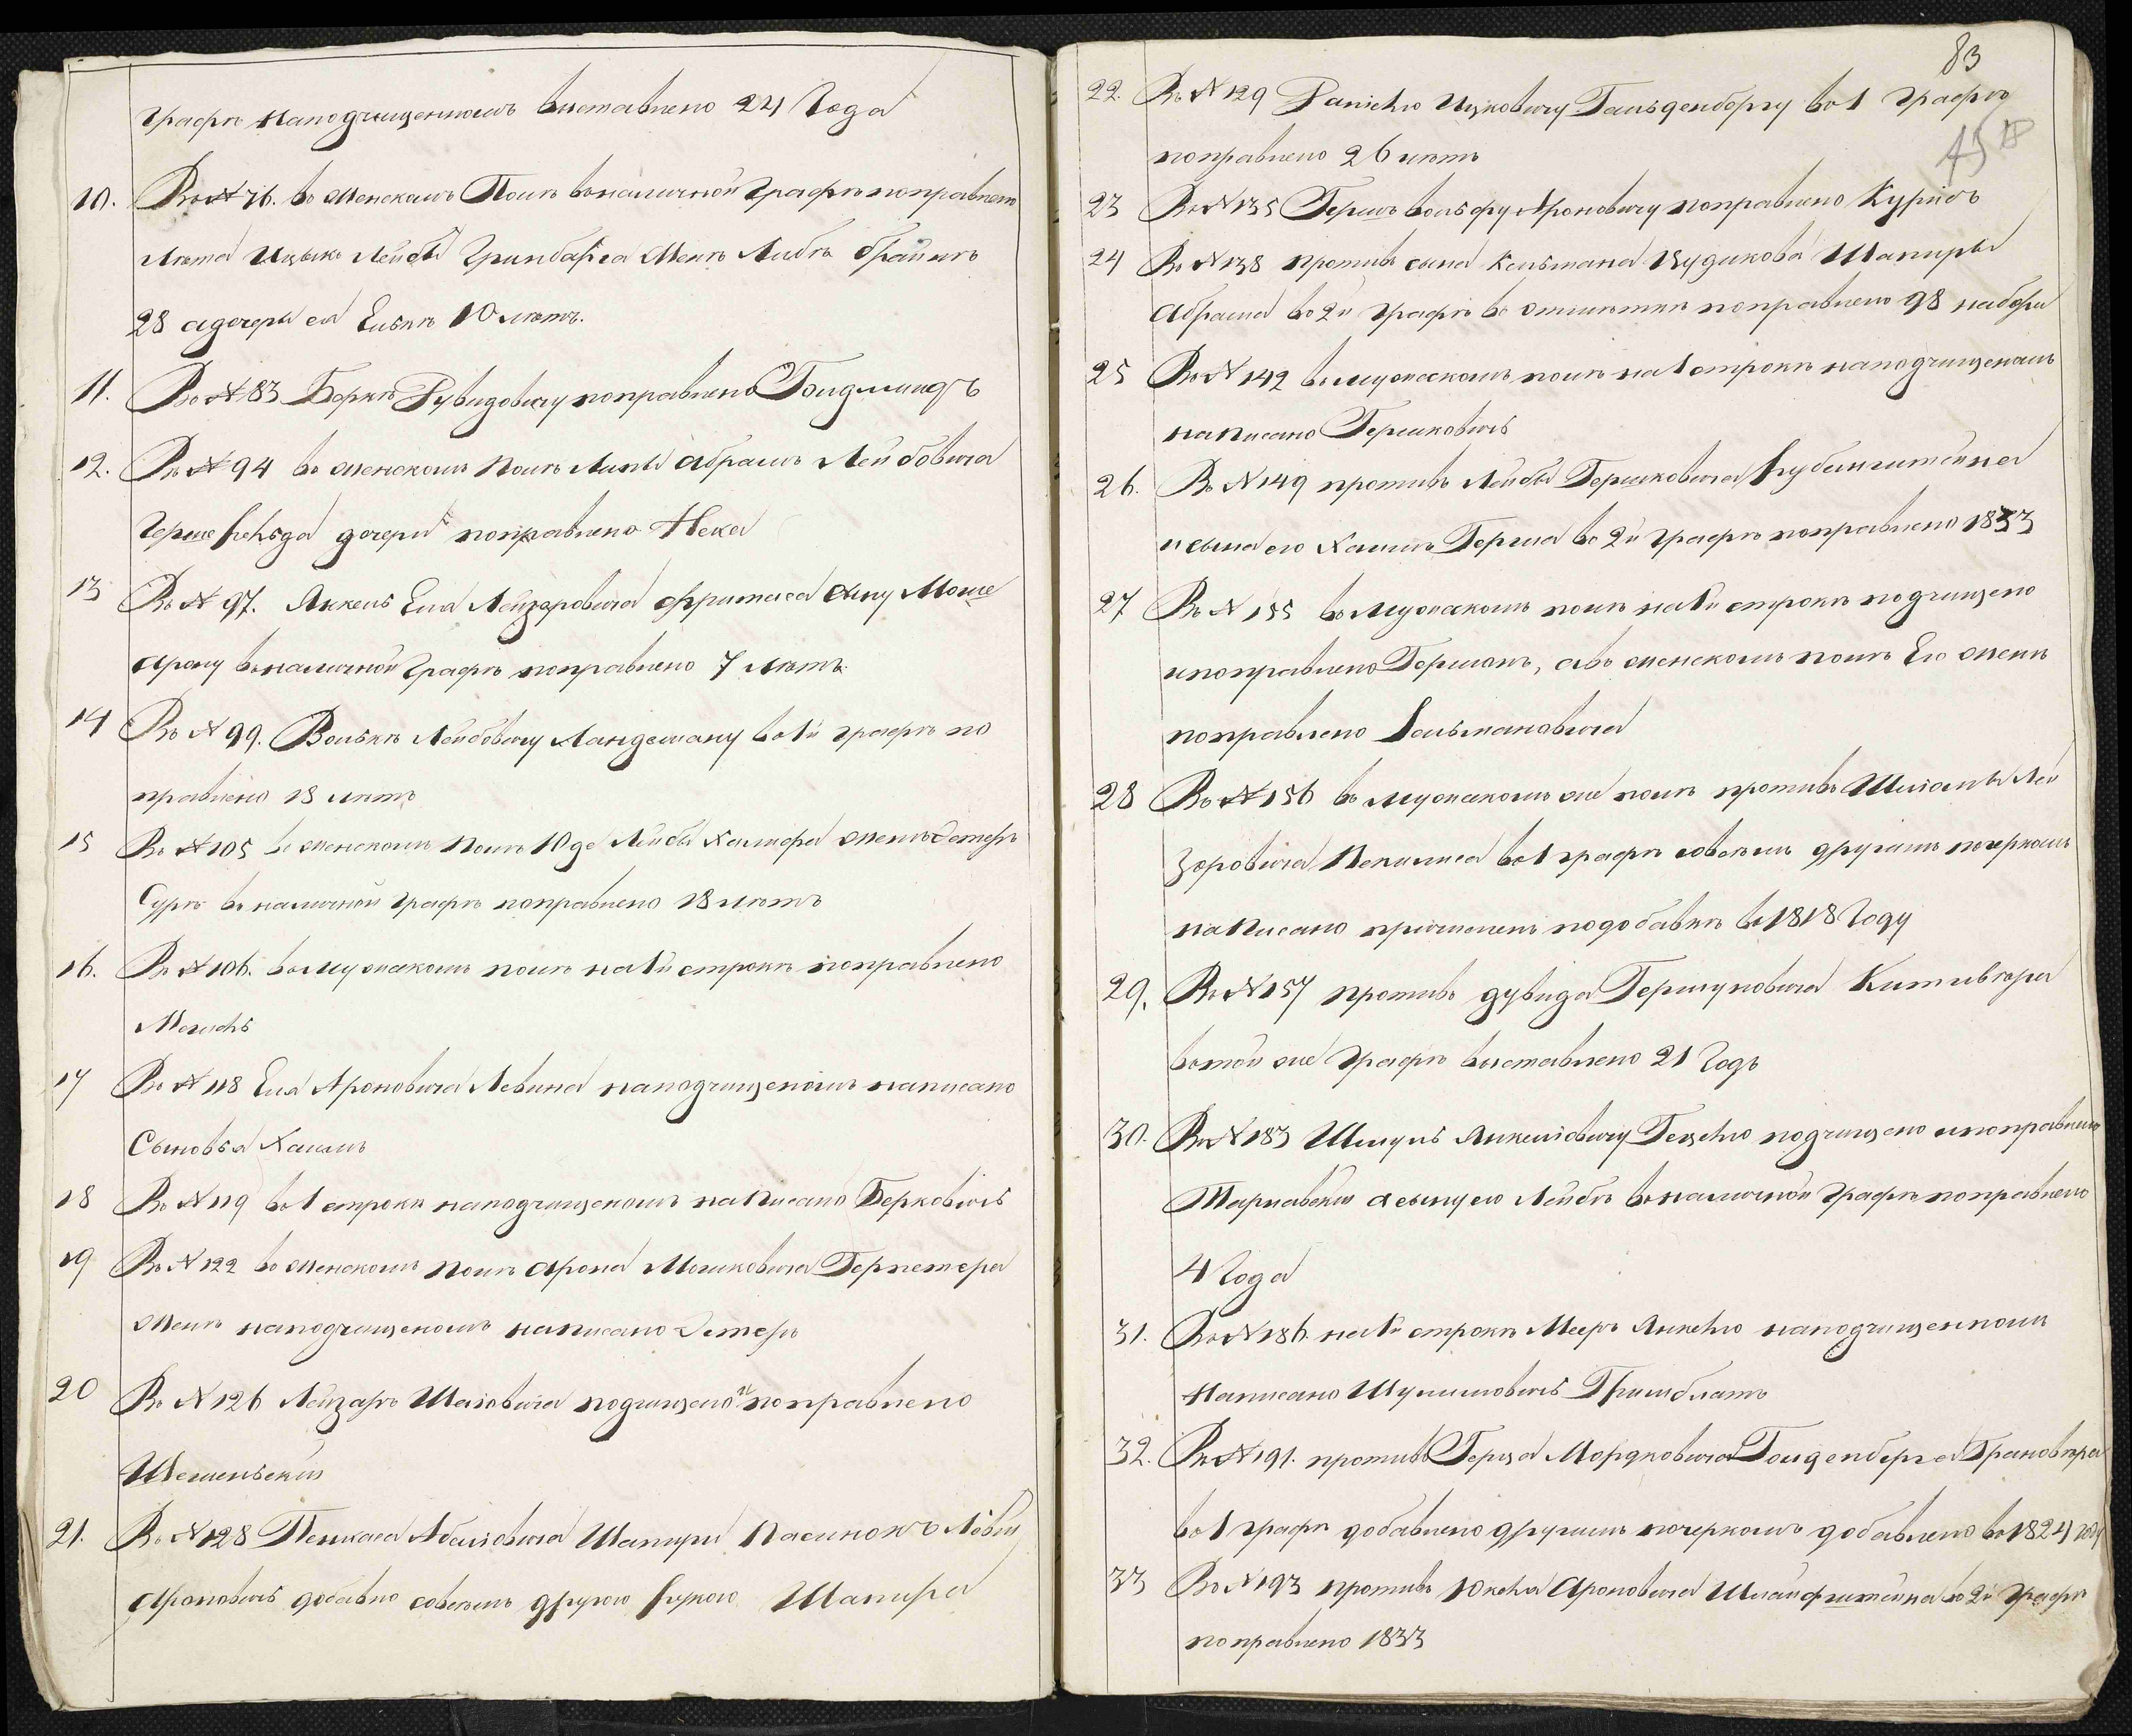 графѣ наподчищенномъ выставлено 24 Года
10. Въ № 76. въ Женскомъ Полѣ въ наличной графѣ поправлено
Лѣта Ицыко Лейбы Гринбарга Женѣ Либѣ брайнѣ
28 а дочеры ея Елькѣ 10 лѣтъ.
11. Въ № 83 Беркѣ Рувидовичу поправлено Голдминцъ
12. Въ № 94 въ женскомъ Полѣ Липы Абрамъ Лейбовича
Гершсфельда дочери поправлено Неха
13 Въ № 97. Янкель Еля Лейзаровича Фритыса сыну Моше
Арону въ наличной графѣ поправлено 7 лѣтъ
14 Въ № 99. Волькѣ Лейбовичу Ландсману во 1й графѣ по
правлено 18 лѣтъ
15 Въ № 105 въ женскомъ Полѣ Юде Лейбы Халифа женѣ Эстеръ
Суре въ наличной графѣ поправлено 18 лѣтъ
16. Въ № 106. въ мужескомъ полѣ на 1й строкѣ поправлено
17 Въ № 118 Еля Ароновича Левина наподчищеномъ написано
Сыновья Хаимъ
18 Въ № 119 во 1 строки наподчищеномъ написано Берковичь
19 Въ № 122 въ женскомъ Полѣ Арона Мошковича Герметера
Женѣ наподчищеномъ написано Эстеръ
20 Въ № 126 Лейзаръ Шаиовича подчищено и поправлено
21. Въ № 128 Пейсаха Абелиовича Шапири Пасинокъ Ловин
Ароновичь добавно совсѣмъ другою рукою Шапира
83
22. Въ № 129 Ицковичу Гольденбергу во 1 графѣ
поправлено 26 лѣтъ
23 Въ № 135 Гершъ вольфу Ароновичу поправлено Куріобъ
24 Въ № 138 противъ сына Кельмана Шапиры
Абрама во 2й графѣ въ отмѣтки поправлено 98 набора
25 Въ № 142 въ мужескомъ полѣ на 1 строкѣ наподчищеномъ
написано Гершковичь
26. Въ № 149 противъ Лейбы Гершковича Рубинштейна
и сына его Хаимъ Герша во 2й графѣ поправлено 1833
27 Въ № 155 въ мужескомъ полѣ на 1й строкѣ подчищено
и поправлено Гершонъ, а въ женскомъ полѣ Его женѣ
поправлено Зельмановича
28 Въ № 156 въ мужескомъ же полѣ противъ Шліомы Лей
зоровича во 1 графѣ совсѣмъ другимъ почеркомъ
написано причисленъ подобавкѣ въ 1818 Году
29. Въ № 157 противъ дувида Гершуновича
въ той же графѣ выставлено 21 Годъ
30. Въ № 183 Шмуль Янкеліовичу Гецелю подчищено и поправлено
Тарнавскій а сыну его Лейбѣ въ наличной графѣ поправлено
4 Года
31. Въ № 186. на 1й строкѣ Мееръ Янкелю наподчищенномъ
Написано Шулимовичь Гринблатъ
32. Въ № 191. противъ Герца Мордковича Голденберга
во 1 графѣ добавлено другимъ почеркомъ добавлено въ 1824 году
33 Въ № 193 противъ Юкеля Ароновича Шлайфштейна во 2й графѣ
поправлено 1833